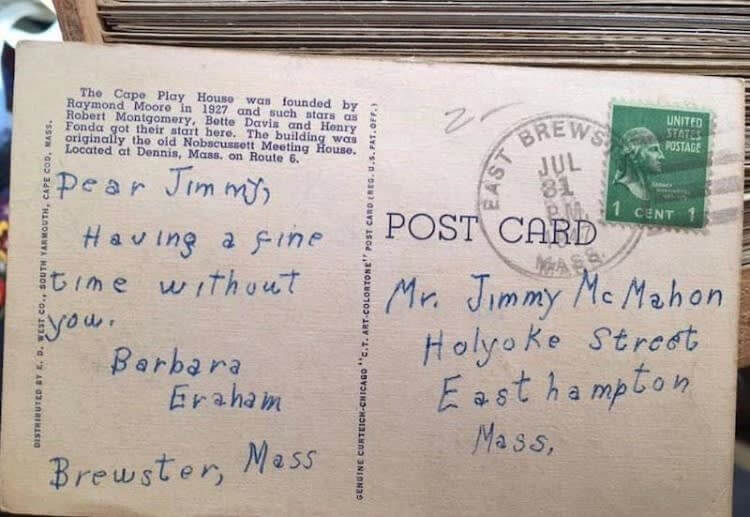 The Cape Play House was founded by
Raymond Moore in 1927 and such stars as
Robert Montgomery, Bette Davis and Henry
Fonda got their start here. The building was
originally the old Nobscussett Meeting House.
Located at Dennis, Mass. on Route 6.
Dear Jimmy,
Having a fine
time without
you.
Barbara
Eraham
Brewster, Mass
DISTRIBUTED BY E. D. WEST CO., SOUTH YARMOUTH, CAPE COD, MASS.
GENUINE CURTEICH-CHICAGO "C.T. ART-COLORTONE" POST CARD (REG. U.S. PAT. OFF.)
EAST BREWS
JUL
31
PM
MASS
UNITED
STATES
POSTAGE
1 CENT 1
POST CARD
Mr. Jimmy McMahon
Holyoke Street
Easthampton
Mass.